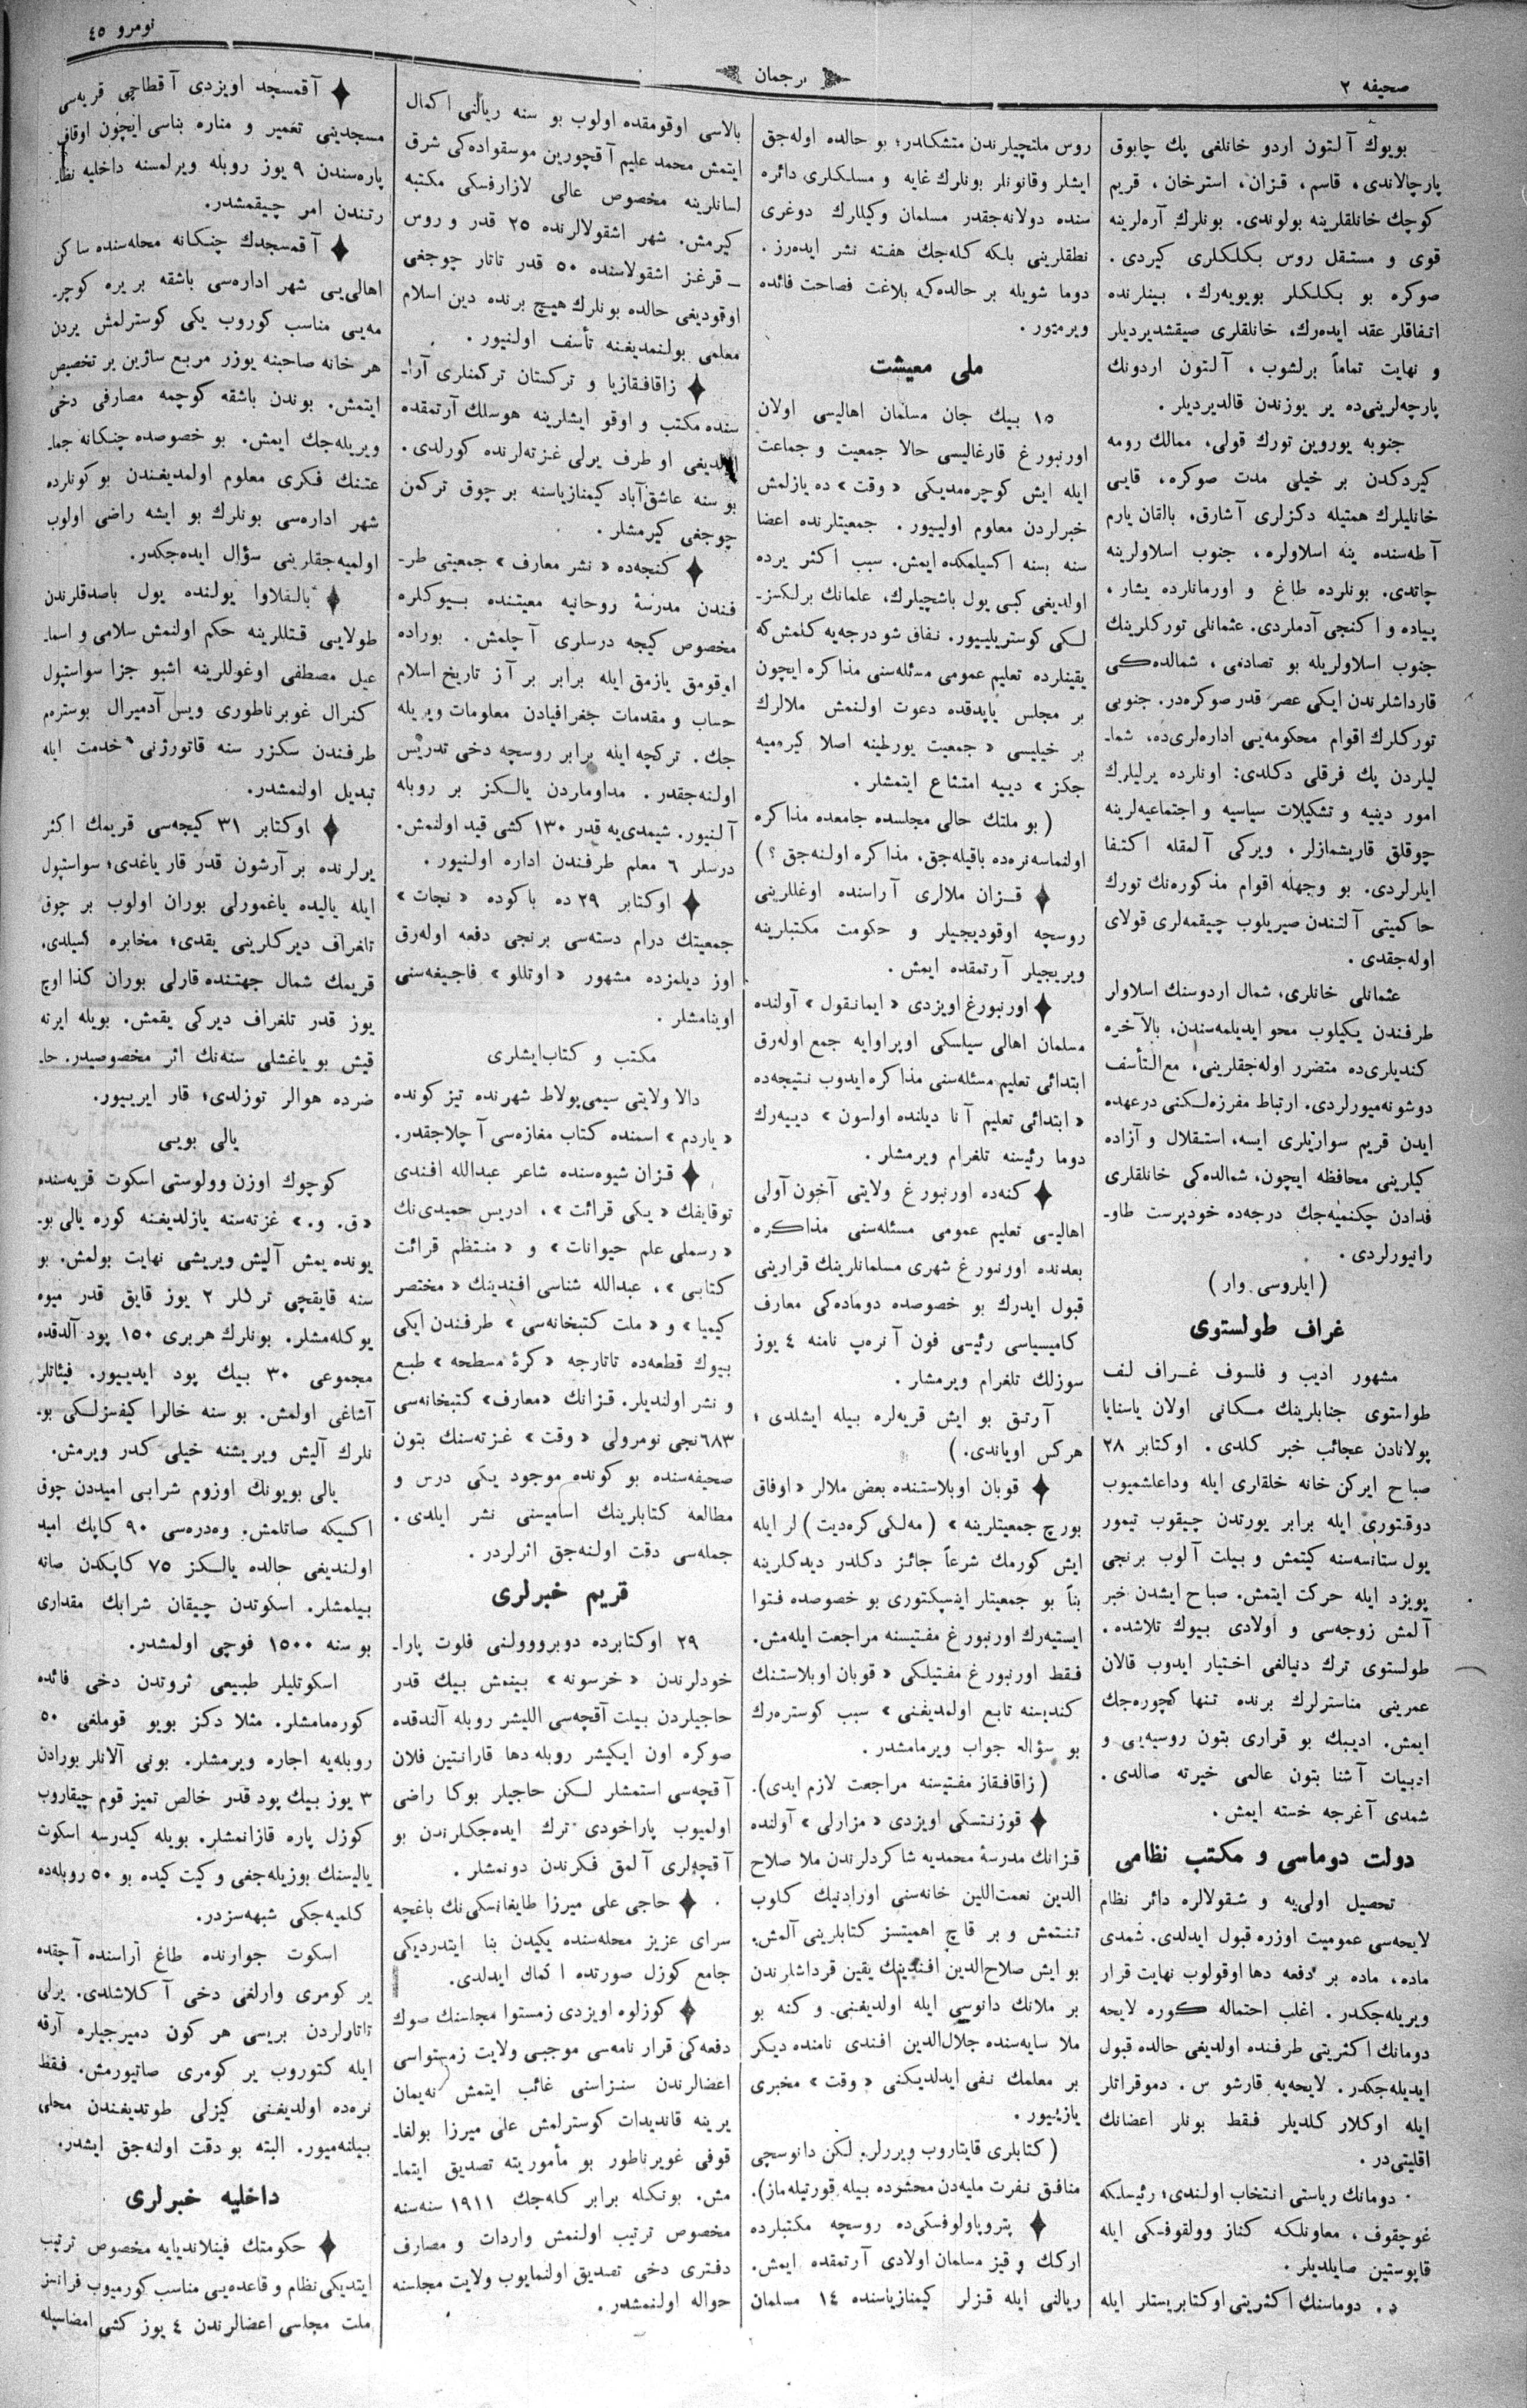 صحیفه ٢
ترجمان
نومرو ٤٥
بویوك آلتون اردو خانلغی پك چابوق
پارچالاندی، قاسم، قزان، استرخان، قریم
كوچك خانلقلرینه بولوندی. بونلرك آره‌لرینه
قوی و مستقل روس بكلكلری كیردی.
صوكره بو بكلكلر بویویه‌رك، بینلرنده
اتفاقلر عقد ایده‌رك، خانلقلری صیقشدیردیلر
و نهایت تماماً برلشوب، آلتون اردونك
پارچه‌لرینی‌ده یر یوزندن قالدیردیلر.
جنوبه یوروین تورك قولی، ممالك رومه
كیردكدن بر خیلی مدت صوكره، قایی
خانلیلرك همتیله دكزلری آشارق، بالقان یارم
آطه‌سنده ینه اسلاولره، جنوب اسلاولرینه
چاتدی. بونلرده طاغ و اورمانلرده یشار،
پیاده و اكنجی آدملردی. عثمانلی توركلرینك
جنوب اسلاولریله بو تصادفی، شمالده‌كی
قارداشلرندن ایكی عصر قدر صوكره‌در. جنوبی
توركلرك اقوام محكومه‌یی اداره‌لری‌ده، شما-
لیلردن پك فرقلی دكلدی: اونلرده یرلیلرك
امور دینیه و تشكیلات سیاسیه و اجتماعیه‌لرینه
چوقلق قاریشمازلر، ویركی آلمقله اكتفا
ایلرلردی. بو وجهله اقوام مذكوره‌نك تورك
حاكمیتی آلتندن صیریلوب چیقمه‌لری قولای
اوله‌جقدی.
عثمانلی خانلری، شمال اردوسنك اسلاولر
طرفندن یكیلوب محو ایدیلمه‌سندن، بالآخره
كندیلری‌ده متضرر اوله‌جقلرینی، مع‌التأسف
دوشونه‌میورلردی. ارتباط مفرزه‌لكنی درعهده
ایدن قریم سواریلری ایسه، استقلال و آزاده
كیلرینی محافظه ایچون، شمالده‌كی خانلقلری
فدادن چكنمیه‌جك درجه‌ده خودپرست طاو-
رانیورلردی.
(ایلروسی وار)
غراف طولستوی
مشهور ادیب و فلسوف غراف لف
طولستوی جنابلرینك مكانی اولان یاسنایا
پولانادن عجائب خبر كلدی. اوكتابر ٢٨
صباح ایركن خانه خلقلری ایله وداعلشمیوب
دوقتوری ایله برابر یورتدن چیقوب تیمور
یول ستانسه‌سنه كیتمش و بیلت آلوب برنجی
پویزد ایله حركت ایتمش. صباح ایشدن خبر
آلمش زوجه‌سی و اولادی بیوك تلاشده.
طولستوی ترك دنیالغی اختیار ایدوب قالان
عمرینی مناسترلرك برنده تنها كچوره‌جك
ایمش. ادیبك بو قراری بتون روسیه‌یی و
ادبیات آشنا بتون عالمی خیرته صالدی.
شمدی آغرجه خسته ایمش.
دولت دوماسی و مكتب نظامی
تحصیل اولیه و شقولالره دائر نظام
لایحه‌سی عمومیت اوزره قبول ایدلدی. شمدی
ماده، ماده بر دفعه دها اوقولوب نهایت قرار
ویریله‌جكدر. اغلب احتماله كوره لایحه
دومانك اكثریتی طرفنده اولدیغی حالده قبول
ایدیله‌جكدر. لایحه‌یه قارشو س. دموقراتلر
ایله اوكلار كلدیلر فقط بونلر اعضانك
اقلیتی‌در.
دومانك ریاستی انتخاب اولندی؛ رئیسلكه
غوچقوف، معاونلكه كناز وولقوفسكی ایله
قاپوستین صایلدیلر.
د. دوماسنك اكثریتی اوكتابریستلر ایله
روس ملتچیلرندن متشكلدر؛ بو حالده اوله‌جق
ایشلر وقانونلر بونلرك غایه و مسلكلری دائره
سنده دولانه‌جقدر مسلمان وكیللرك دوغری
نطقلرینی بلكه كله‌جك هفته نشر ایده‌رز.
دوما شویله بر حالده‌كه بلاغت فصاحت فائده
ویرمیور.
ملی معیشت
١٥ بیك جان مسلمان اهالیسی اولان
اورنبورغ قارغالیسی حالا جمعیت و جماعت
ایله ایش كوچره‌مدیكی «وقت» ده یازلمش
خبرلردن معلوم اولییور. جمعیتلرنده اعضا
سنه بسنه اكسیلمكده ایمش. سبب اكثر یرده
اولدیغی كبی یول باشچیلرك، علمانك برلكسز-
لكی كوستریلییور. نفاق شو درجه‌یه كلمش‌كه
یقینلرده تعلیم عمومی مسئله‌سنی مذاكره ایچون
بر مجلس یاپدقده دعوت اولنمش ملالرك
بر خیلیسی «جمعیت یورطینه اصلا كیرمیه
جكز» دییه امتناع ایتمشلر.
(بو ملتك حالی مجلسده جامعده مذاكره
اولنماسه نره‌ده باقیله‌جق، مذاكره اولنه‌جق؟)
قزان ملالری آراسنده اوغللرینی
روسچه اوقودیجیلر و حكومت مكتبلرینه
ویریجیلر آرتمقده ایمش.
اورنبورغ اویزدی «ایمانقول» آولنده
مسلمان اهالی سیلسكی اوپراوایه جمع اوله‌رق
ابتدائی تعلیم مسئله‌سنی مذاكره ایدوب نتیجه‌ده
«ابتدائی تعلیم آنا دیلنده اولسون» دییه‌رك
دوما رئیسنه تلغرام ویرمشلر.
كنه‌ده اورنبورغ ولایتی آخون آولی
اهالیسی تعلیم عمومی مسئله‌سنی مذاكره
بعدنده اورنبورغ شهری مسلمانلرینك قرارینی
قبول ایدرك بو خصوصده دوماده‌كی معارف
كامیسیاسی رئیسی فون آنره‌پ نامنه ٤ یوز
سوزلك تلغرام ویرمشلر.
آرتق بو ایش قریه‌لره بیله ایشلدی؛
هركس اویاندی.)
قوبان اوبلاستنده بعض ملالر «اوفاق
بورج جمعیتلرینه» (مه‌لكی كره‌دیت) لر ایله
ایش كورمك شرعاً جائز دكلدر دیدكلرینه
بناً بو جمعیتلر اینسپكتوری بو خصوصده فتوا
ایستیه‌رك اورنبورغ مفتیسنه مراجعت ایله‌مش.
فقط اورنبورغ مفتیلكی «قوبان اوبلاستنك
كندیسنه تابع اولمدیغنی» سبب كوستره‌رك
بو سؤاله جواب ویرمامشدر.
(زاقافقاز مفتیسنه مراجعت لازم ایدی).
قوزنتسكی اویزدی «مزارلی» آولنده
قزانك مدرسۀ محمدیه شاكردلرندن ملا صلاح
الدین نعمت‌اللین خانه‌سنی اورادنیك كلوب
تنتمش و بر قاچ اهمیتسز كتابلرینی آلمش.
بو ایش صلاح‌الدین افندینك یقین قرداشلرندن
بر ملانك دانوسی ایله اولدیغنی و كنه بو
ملا سایه‌سنده جلال‌الدین افندی نامنده دیكر
بر معلمك نفی ایدلدیكنی «وقت» مخبری
یازییور.
(كتابلری قایتاروب ویررلر. لكن دانوسچی
منافق نفرت ملیه‌دن محشرده بیله قورتیله‌ماز).
پتروپاولوفسكی‌ده روسچه مكتبلرده
اركك و قیز مسلمان اولادی آرتمقده ایمش.
ریالنی ایله قزلر كیمنازیاسنده ١٤ مسلمان
بالاسی اوقومقده اولوب بو سنه ریالنی اكمال
ایتمش محمد علیم آقچورین موسقواده‌كی شرق
لسانلرینه مخصوص عالی لازارفسكی مكتبه
كیرمش. شهر اشقولالرنده ٢٥ قدر و روس
ـ قرغز اشقولاسنده ٥٠ قدر تاتار چوجغی
اوقودیغی حالده بونلرك هیچ برنده دین اسلام
معلمی بولنمدیغنه تأسف اولنیور.
زاقافقازیا و تركستان تركمنلری آرا-
سنده مكتب و اوقو ایشلرینه هوسلك آرتمقده
اولدیغی او طرف یرلی غزته‌لرنده كورلدی.
بو سنه عاشق‌آباد كیمنازیاسنه بر چوق تركمن
چوجغی كیرمشلر.
كنجه‌ده «نشر معارف» جمعیتی طر-
فندن مدرسۀ روحانیه معیتنده بیوكلره
مخصوص كیجه درسلری آچلمش. بوراده
اوقومق یازمق ایله برابر بر آز تاریخ اسلام
حساب و مقدمات جغرافیادن معلومات ویریله
جك. تركچه ایله برابر روسچه دخی تدریس
اولنه‌جقدر. مداوماردن یالكز بر روبله
آلنیور. شیمدی‌یه قدر ١٣٠ كشی قید اولنمش.
درسلر ٦ معلم طرفندن اداره اولنیور.
اوكتابر ٢٩ ده باكوده «نجات»
جمعیتك درام دسته‌سی برنجی دفعه اوله‌رق
اوز دیلمزده مشهور «اوتللو» فاجیغه‌سنی
اوینامشلر.
مكتب و كتاب ایشلری
دالا ولایتی سیمی‌پولاط شهرنده تیز كونده
«یاردم» اسمنده كتاب مغازه‌سی آچلاجقدر.
قزان شیوه‌سنده شاعر عبدالله افندی
توقایفك «یكی قرائت»، ادریس حمیدی‌نك
«رسملی علم حیوانات» و «منتظم قرائت
كتابی»، عبدالله شناسی افندینك «مختصر
كیمیا» و «ملت كتبخانه‌سی» طرفندن ایكی
بیوك قطعه‌ده تاتارجه «كرۀ مسطحه» طبع
و نشر اولندیلر. قزانك «معارف» كتبخانه‌سی
٦٨٣نجی نومرولی «وقت» غزته‌سنك بتون
صحیفه‌سنده بو كونده موجود یكی درس و
مطالعه كتابلرینك اسامیسنی نشر ایلدی.
جمله‌سی دقت اولنه‌جق اثرلردر.
قریم خبرلری
٢٩ اوكتابرده دوبرووولنی فلوت پارا-
خودلرندن «خرسونه» بینمش بیك قدر
حاجیلردن بیلت آقچه‌سی اللیشر روبله آلندقده
صوكره اون ایكیشر روبله دها قارانتین فلان
آقچه‌سی استمشلر لكن حاجیلر بوكا راضی
اولمیوب پاراخودی ترك ایده‌جكلرندن بو
آقچه‌لری آلمق فكرندن دونمشلر.
حاجی علی میرزا طایغانسكی‌نك باغچه
سرای عزیز محله‌سنده یكیدن بنا ایتدردیكی
جامع كوزل صورتده اكماك ایدلدی.
كوزلوه اویزدی زمستوا مجلسنك صوك
دفعه‌كی قرار نامه‌سی موجبی ولایت زمستواسی
اعضالرندن سنزاسنی غائب ایتمش نه‌یمان
یرینه قاندیدات كوسترلمش علی میرزا بولغا-
قوفی غوبرناطور بو مأموریته تصدیق ایتما-
مش. بونكله برابر كله‌جك ١٩١١ سنه‌سنه
مخصوص ترتیب اولنمش واردات و مصارف
دفتری دخی تصدیق اولنمایوب ولایت مجلسنه
حواله اولنمشدر.
آقمسجد اویزدی آقطاچی قریه‌سی
مسجدینی تعمیر و مناره بناسی ایچون اوقاف
پاره‌سندن ٩ یوز روبله ویرلمسنه داخلیه نظا-
رتندن امر چیقمشدر.
آقمسجدك چنكانه محله‌سنده ساكن
اهالی‌یی شهر اداره‌سی باشقه بر یره كوچر-
مه‌یی مناسب كوروب یكی كوسترلمش یردن
هر خانه صاحبنه یوزر مربع ساژین یر تخصیص
ایتمش. بوندن باشقه كوچمه مصارفی دخی
ویریله‌جك ایمش. بو خصوصده چنكانه جما-
عتنك فكری معلوم اولمدیغندن بو كونلرده
شهر اداره‌سی بونلرك بو ایشه راضی اولوب
اولمیه‌جقلرینی سؤال ایده‌جكدر.
بالقلاوا یولنده یول باصدقلرندن
طولایی قتللرینه حكم اولنمش سلامی و اسما-
عیل مصطفی اوغوللرینه اشبو جزا سواستپول
كنرال غوبرناطوری ویس آدمیرال بوسترم
طرفندن سكزر سنه قاتورژنی خدمت ایله
تبدیل اولنمشدر.
اوكتابر ٣١ كیجه‌سی قریمك اكثر
یرلرنده بر آرشون قدر قار یاغدی؛ سواستپول
ایله یالیده یاغمورلی بوران اولوب بر چوق
تلغراف دیركلرینی یقدی؛ مخابره كسیلدی.
قریمك شمال جهتنده قارلی بوران كذا اوچ
یوز قدر تلغراف دیركی یقمش. بویله ایرته
قیش بو یاغشلی سنه‌نك اثر مخصوصیدر. حا-
ضرده هوالر توزلدی؛ قار ایرییور.
یالی بویی
كوچوك اوزن وولوستی اسكوت قریه‌سنده
«ق. و.» غزته‌سنه یازلدیغنه كوره یالی بو-
یونده یمش آلیش ویریشی نهایت بولمش. بو
سنه قایقچی تركلر ٢ یوز قایق قدر میوه
یوكله‌مشلر. بونلرك هربری ١٥٠ پود آلدقده
مجموعی ٣٠ بیك پود ایدییور. فیئاتلر
آشاغی اولمش. بو سنه خالرا كیفسزلكی بو-
نلرك آلیش ویریشنه خیلی كدر ویرمش.
یالی بویونك اوزوم شرابی امیددن چوق
اكسیكه صاتلمش. وه‌دره‌سی ٩٠ كاپك امید
اولندیغی حالده یالكز ٧٥ كاپكدن صاته
بیلمشلر. اسكوتدن چیقان شرابك مقداری
بو سنه ١٥٠٠ فوچی اولمشدر.
اسكوتلیلر طبیعی ثروتدن دخی فائده
كوره‌مامشلر. مثلا دكز بویو قوملغی ٥٠
روبله‌یه اجاره ویرمشلر. بونی آلانلر بورادن
٣ یوز بیك پود قدر خالص تمیز قوم چیقاروب
كوزل پاره قازانمشلر. بویله كیدرسه اسكوت
یالیسنك بوزیله‌جغی و كیت كیده بو ٥٠ روبله‌ده
كلمیه‌جكی شبهه‌سزدر.
اسكوت جوارنده طاغ آراسنده آچقده
یر كومری وارلغی دخی آكلاشلدی. یرلی
تاتارلردن بریسی هر كون دمیرجیلره آرقه
ایله كتوروب یر كومری صاتیورمش. فقط
نره‌ده اولدیغنی كیزلی طوتدیغندن محلی
بیلنه‌میور. البته بو دقت اولنه‌جق ایشدر.
داخلیه خبرلری
حكومتك فینلاندیایه مخصوص ترتیب
ایتدیكی نظام و قاعده‌یی مناسب كورمیوب فرانسز
ملت مجلسی اعضالرندن ٤ یوز كشی امضاسیله